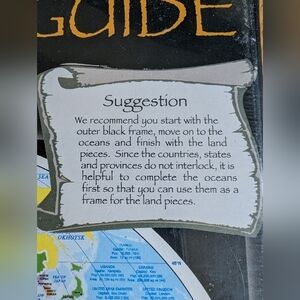 GUIDE
Suggestion
We recommend you start with the
outer black frame, move on to the
oceans and finish with the land
pieces. Since the countries, states
and provinces do not interlock, it is
helpful to complete the oceans
first so that you can use them as a
frame for the land pieces.
OKHOTSK
UNITED ARAB EMIRATES
UNITED KINGDOM